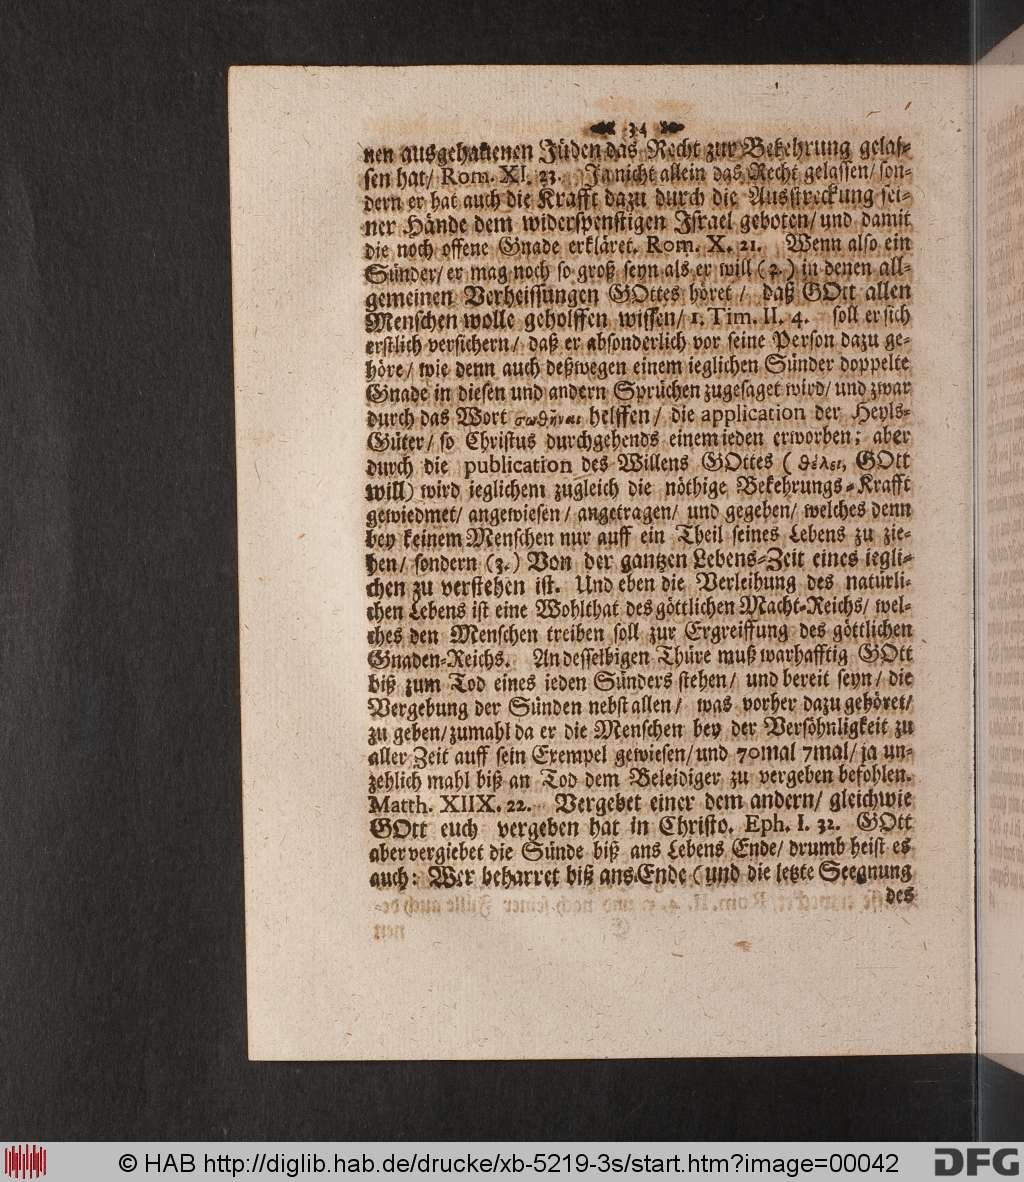 34
nen ausgehauenen Jüden das Recht zur Bekehrung gelas-
sen hat/ Rom. XI. 23. Ja nicht allein das Recht gelassen/ son-
dern er hat auch die Krafft dazu durch die Ausstreckung sei-
ner Hände dem widerspenstigen Israel geboten/ und damit
die noch offene Gnade erkläret. Rom. X. 21. Wenn also ein
Sünder/ er mag noch so groß seyn als er will (2.) in denen all-
gemeinen Verheissungen GOttes höret/ daß GOtt allen
Menschen wolle geholffen wissen/ 1. Tim. II. 4. soll er sich
erstlich versichern/ daß er absonderlich vor seine Person dazu ge-
höre/ wie denn auch deßwegen einem ieglichen Sünder doppelte
Gnade in diesen und andern Sprüchen zugesaget wird/ und zwar
durch das Wort σωθῆναι helffen/ die application der Heyls-
Güter/ so Christus durchgehends einem ieden erworben; aber
durch die publication des Willens GOttes ( θέλει, GOtt
will) wird ieglichem zugleich die nöthige Bekehrungs-Krafft
gewiedmet/ angewiesen/ angetragen/ und gegeben/ welches denn
bey keinem Menschen nur auff ein Theil seines Lebens zu zie-
hen/ sondern (3.) Von der gantzen Lebens-Zeit eines iegli-
chen zu verstehen ist. Und eben die Verleihung des natürli-
chen Lebens ist eine Wohlthat des göttlichen Macht-Reichs/ wel-
ches den Menschen treiben soll zur Ergreiffung des göttlichen
Gnaden-Reichs. An desselbigen Thüre muß warhafftig GOtt
biß zum Tod eines ieden Sünders stehen/ und bereit seyn/ die
Vergebung der Sünden nebst allen/ was vorher dazu gehöret/
zu geben/ zumahl da er die Menschen bey der Versöhnligkeit zu
aller Zeit auff sein Exempel gewiesen/ und 70mal 7mal/ ja un-
zehlich mahl biß an Tod dem Beleidiger zu vergeben befohlen.
Matth. XIIX. 22. Vergebet einer dem andern/ gleichwie
GOtt euch vergeben hat in Christo. Eph. I. 32. GOtt
aber vergiebet die Sünde biß ans Lebens Ende/ drumb heist es
auch: Wer beharret biß ans Ende (und die letzte Seegnung
des
© HAB http://diglib.hab.de/drucke/xb-5219-3s/start.htm?image=00042
DFG